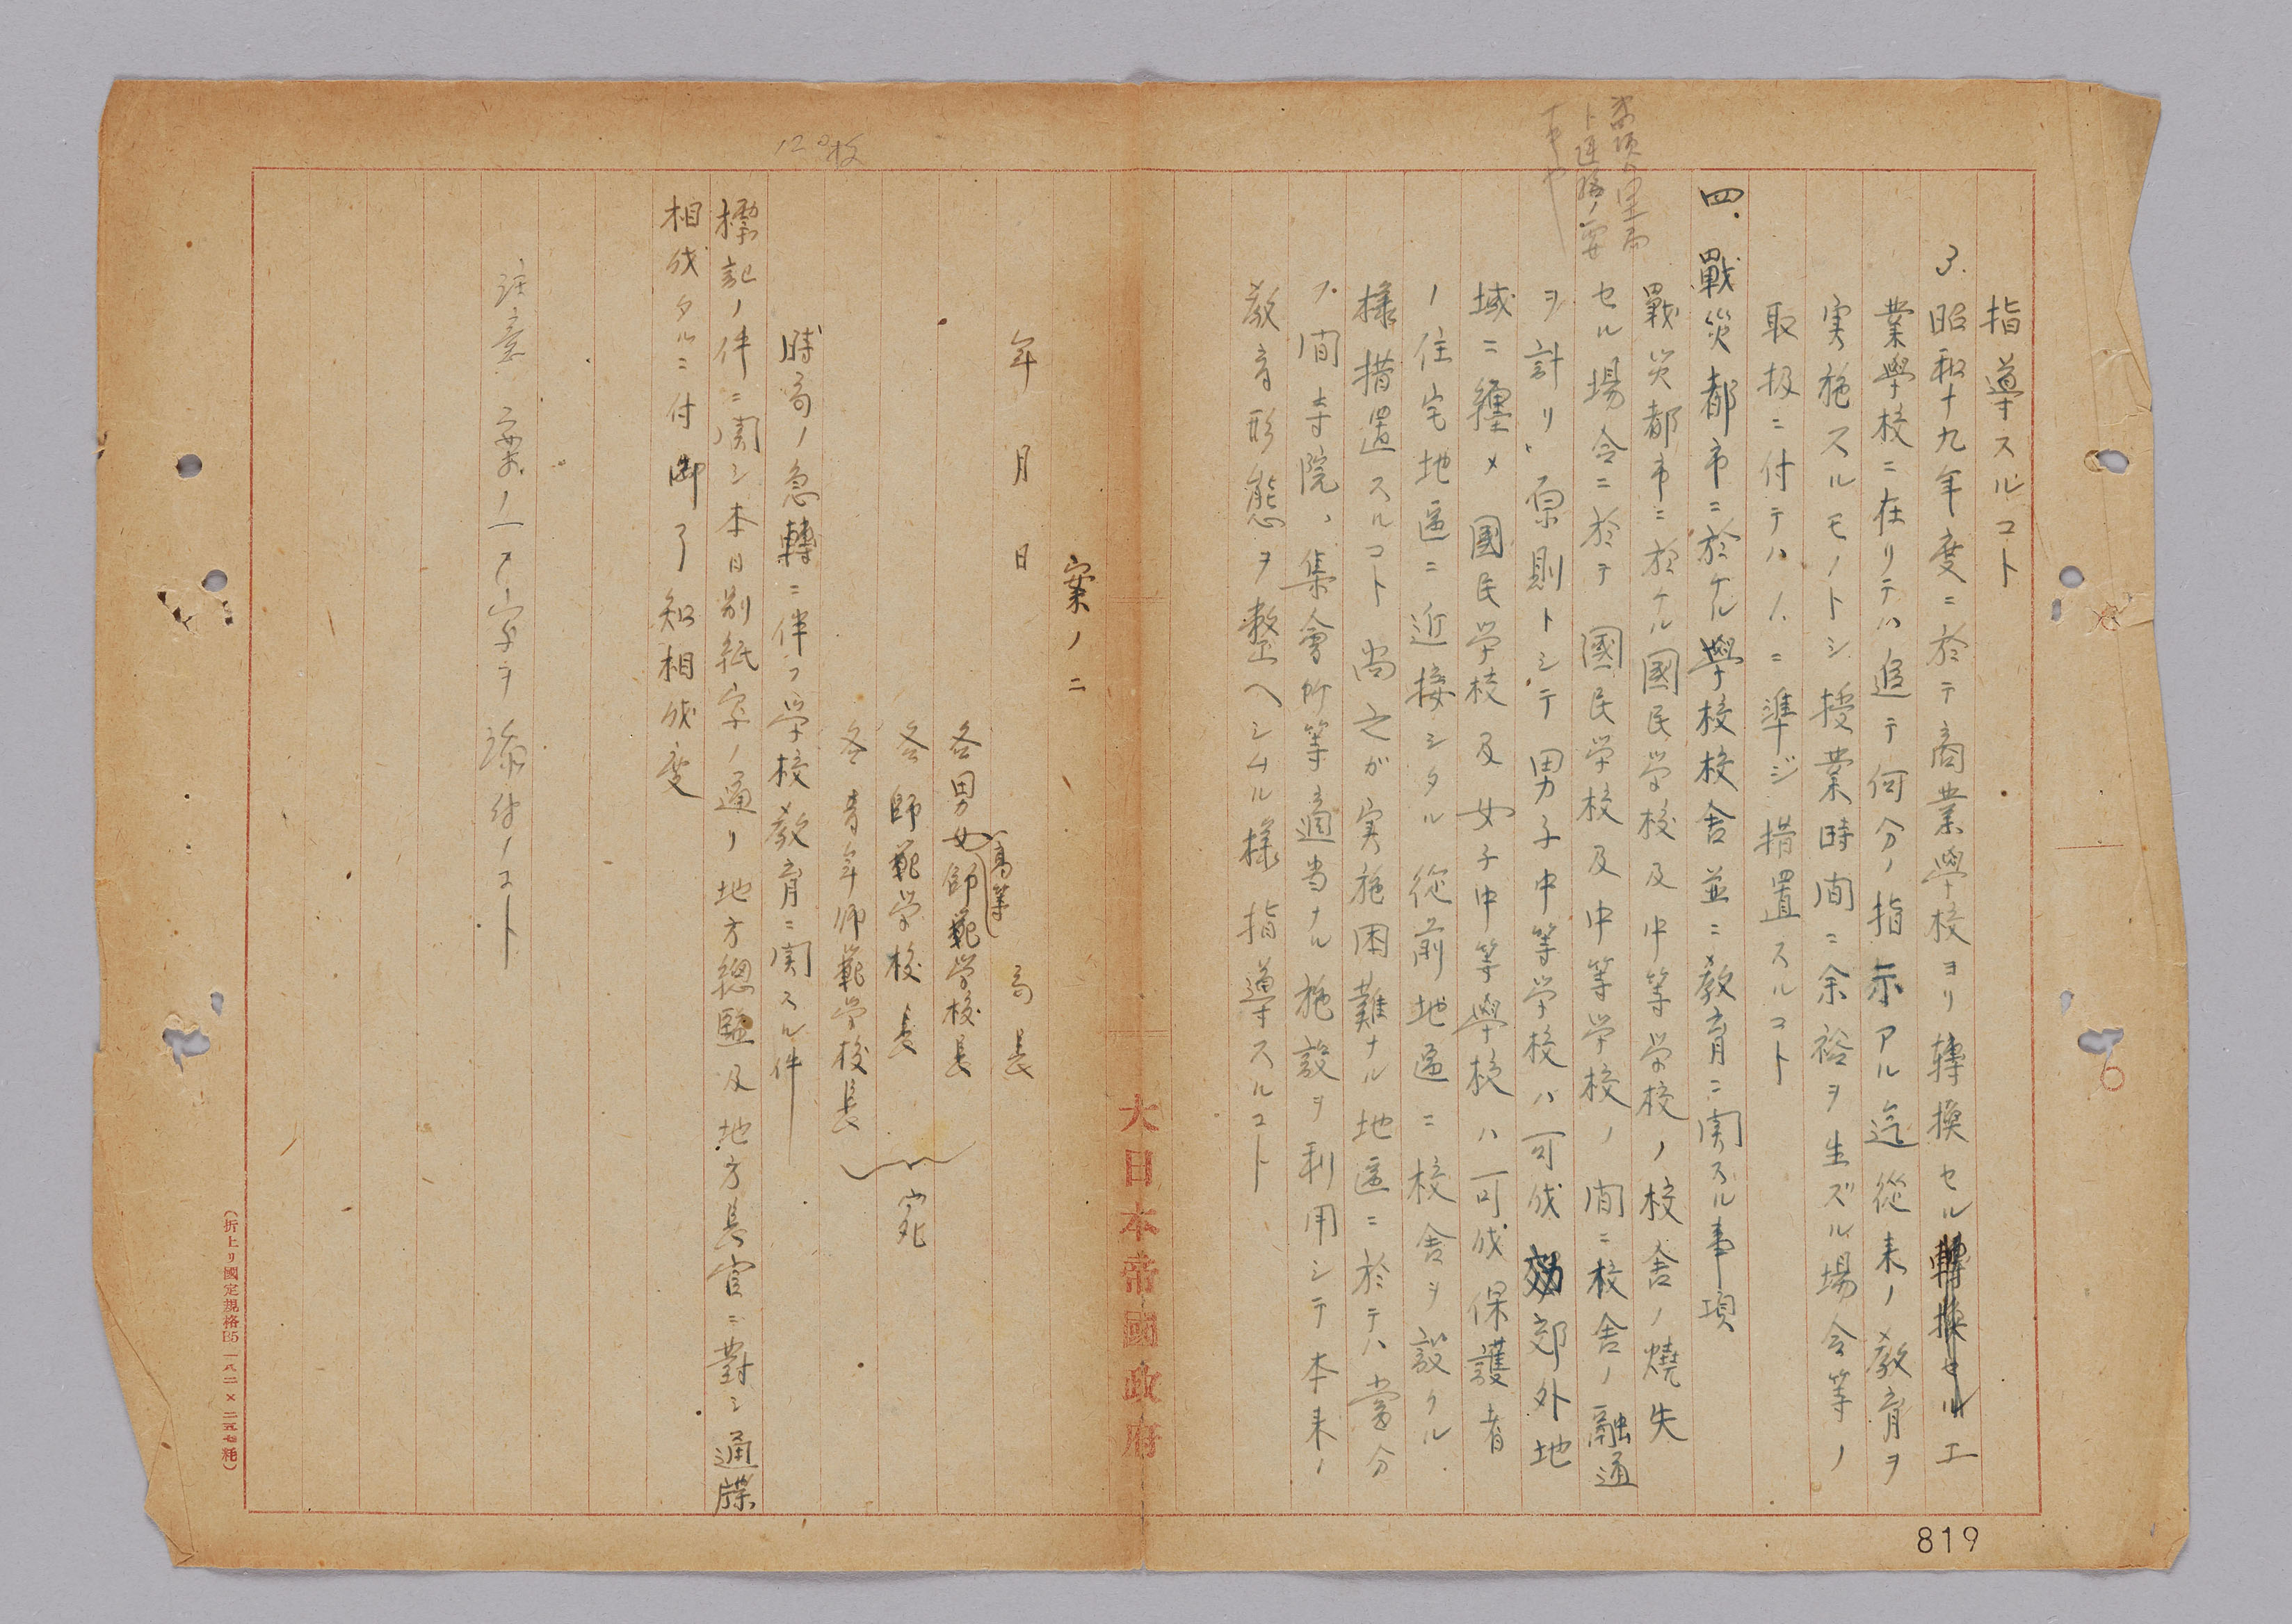 指導スルコト
3. 昭和十九年度ニ於テ商業學校ヨリ轉換セル轉換セル工
業學校ニ在リテハ追テ何分ノ指示アル迄從来ノ教育ヲ
実施スルモノトシ授業時間ニ余裕ヲ生ズル場合等ノ
取扱ニ付テハ1.ニ準ジ措置スルコト
四. 戰災都市ニ於ケル學校校舎並ニ教育ニ関スル事項
戰災都市ニ於ケル國民学校及中等学校ノ校舎ノ燒失
セル場合ニ於テ國民学校及中等学校ノ間ニ校舎ノ融通
ヲ計リ、原則トシテ男子中等学校ハ可成郊外地
域ニ纏メ國民学校及女子中等學校ハ可成保護者
ノ住宅地區ニ近接シタル從前地區ニ校舎ヲ設クル
様措置スルコト尚之が実施困難ナル地區ニ於テハ當分
ノ間寺院、集會所等適当ナル施設ヲ利用シテ本来ノ
教育形態ヲ整ヘシムル様指導スルコト
大日本帝國政府
案ノ二
年 月 日
局長
各男女高等師範学校長
各師範学校長
各青年師範学校長
宛
時局ノ急轉ニ伴フ学校教育ニ関スル件
標記ノ件ニ関シ本日別紙写ノ通リ地方總監及地方長官ニ對シ通牒
相成タルニ付御了知相成度
注意 案ノ一ノ写ヲ添付ノコト
120枚
(折上リ國定規格B5 一八二×二五七粍)
819
6